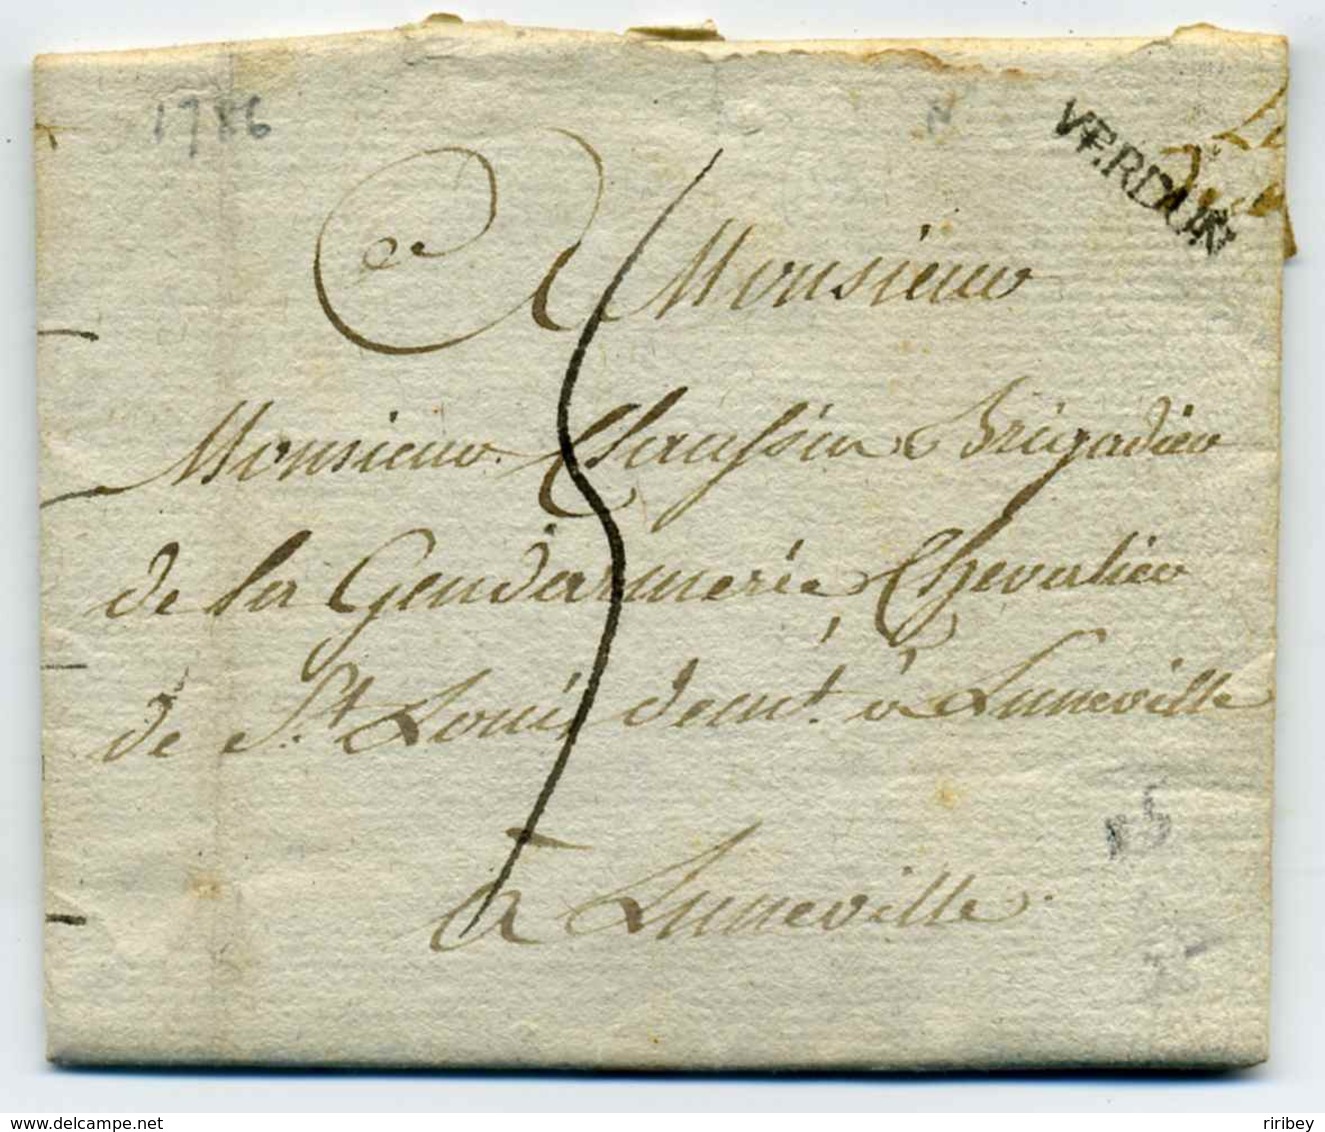 1786
VERDUN
A Monsieur
Monsieur Chaussin Brigadier
de la Gendarmerie Chevalier
de St. Louis à Luneville
à Luneville
25
www.delcampe.net
riribey